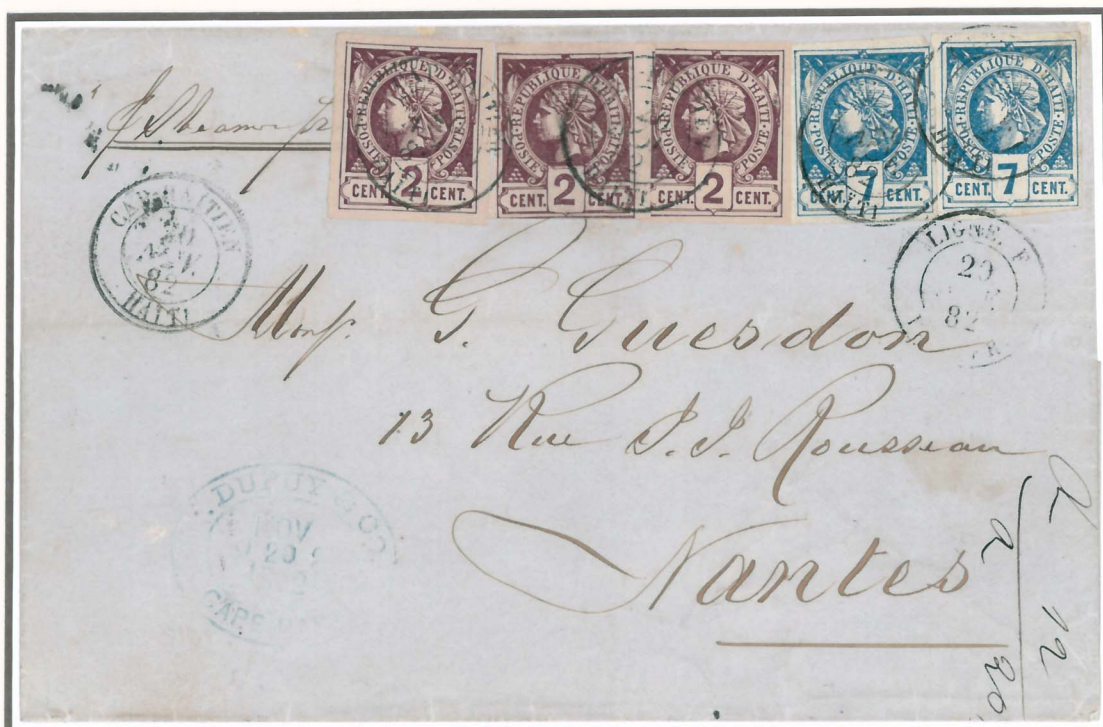 RÉPUBLIQUE D'HAITI POSTE
CENT. 2 CENT.
RÉPUBLIQUE D'HAITI POSTE
CENT. 2 CENT.
RÉPUBLIQUE D'HAITI POSTE
CENT. 2 CENT.
RÉPUBLIQUE D'HAITI POSTE
CENT. 7 CENT.
RÉPUBLIQUE D'HAITI POSTE
CENT. 7 CENT.
Steamer
CAP-HAITIEN
20
NOV.
82
HAITI
LIGNE. F
20
82
G. Guesdon
13 Rue J. J. Rousseau
Nantes
DUPUY & CO.
NOV
20
2
12
20